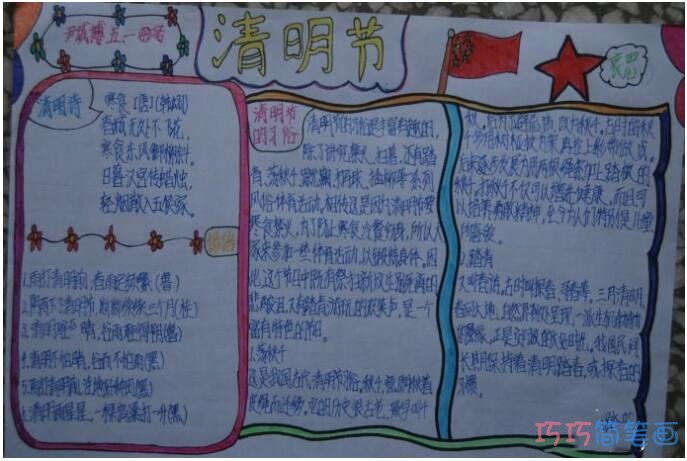 清明节
清明诗
寒食 [唐] (韩翃)
春城无处不飞花,
寒食东风御柳斜。
日暮汉宫传蜡烛,
轻烟散入五侯家。
谚语
1.雨打清明前,春雨定频繁(鲁)
3.清明难 晴,谷雨难得明(鲁)
4.清明不怕晴,谷雨不怕雨(黑)
5.雨打清明前,洼地好种田(黑)
清明节
的习俗
清明节的习俗是丰富有趣的,
除了讲究禁火、扫墓,还有踏
青、荡秋千、蹴鞠、打马球、插柳等一系列
风俗体育活动。相传这是因为清明节要
寒食禁火,为了防止寒食冷餐伤身,所以大
家来参加一些体育活动,以锻炼身体。因
此,这个节日中既有祭扫新坟生别死离的
悲酸泪,又有踏青游玩的欢笑声,是一个
富有特色的节日。
1.荡秋千
这是我国古代清明节习俗。秋千,意即揪着
皮绳而迁移。它的历史很古老,最早叫千
秋,后为避忌讳,改为秋千。古时的秋
千多用树桠枝为架,再拴上彩带做成。
后来逐步发展为用两根绳索加上踏板的
秋千。打秋千不仅可以增进健康,而且可
以培养勇敢精神,至今为人们特别是儿童
所喜爱。
2.踏青
又叫春游。古时叫探春、寻春等。三月清明,
春回大地,自然界到处呈现一派生机勃勃
的景象,正是郊游的大好时光。我国民间
长期保持着清明踏青,或探春的
习惯。
巧巧简笔画